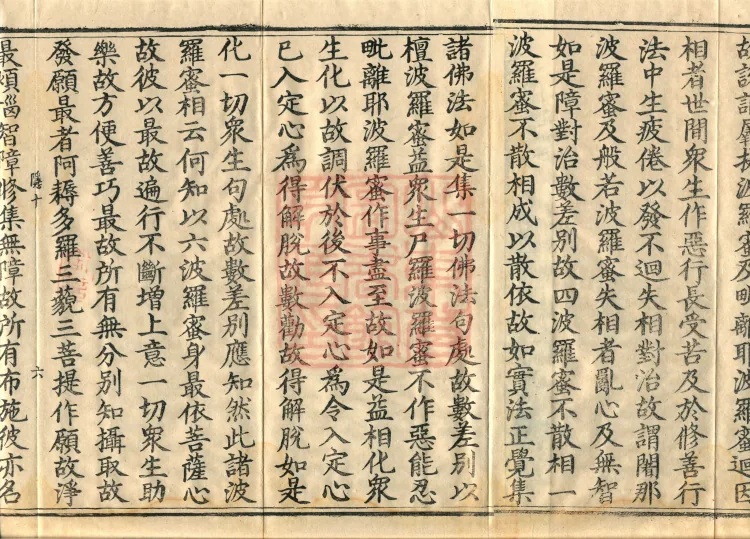 波羅蜜及毗離耶波羅蜜迴因
相者世間衆生作惡行長受苦及於修善行
法中生疲倦以發不迴失相對治故謂闍那
波羅蜜及般若波羅蜜失相者亂心及無智
如是障對治數差別故四波羅蜜不散相一
波羅蜜不散相成以散依故如實法正覺集
諸佛法如是集一切佛法句處故數差別以
檀波羅蜜益衆生尸羅波羅蜜不作惡能忍
毗離耶波羅蜜作事盡至故如是益相化衆
生化以故調伏於後不入定心爲令入定心
已入定心爲得解脫故數勸故得解脫如是
化一切衆生句處故數差別應知然此諸波
羅蜜相云何知以六波羅蜜身最依菩薩心
故彼以最故遍行不斷增上意一切衆生助
樂故方便善巧最故所有無分別知攝取故
發願最者阿耨多羅三藐三菩提作願故淨
隱十 六
最煩惱智障修集無障故所有布施彼亦名